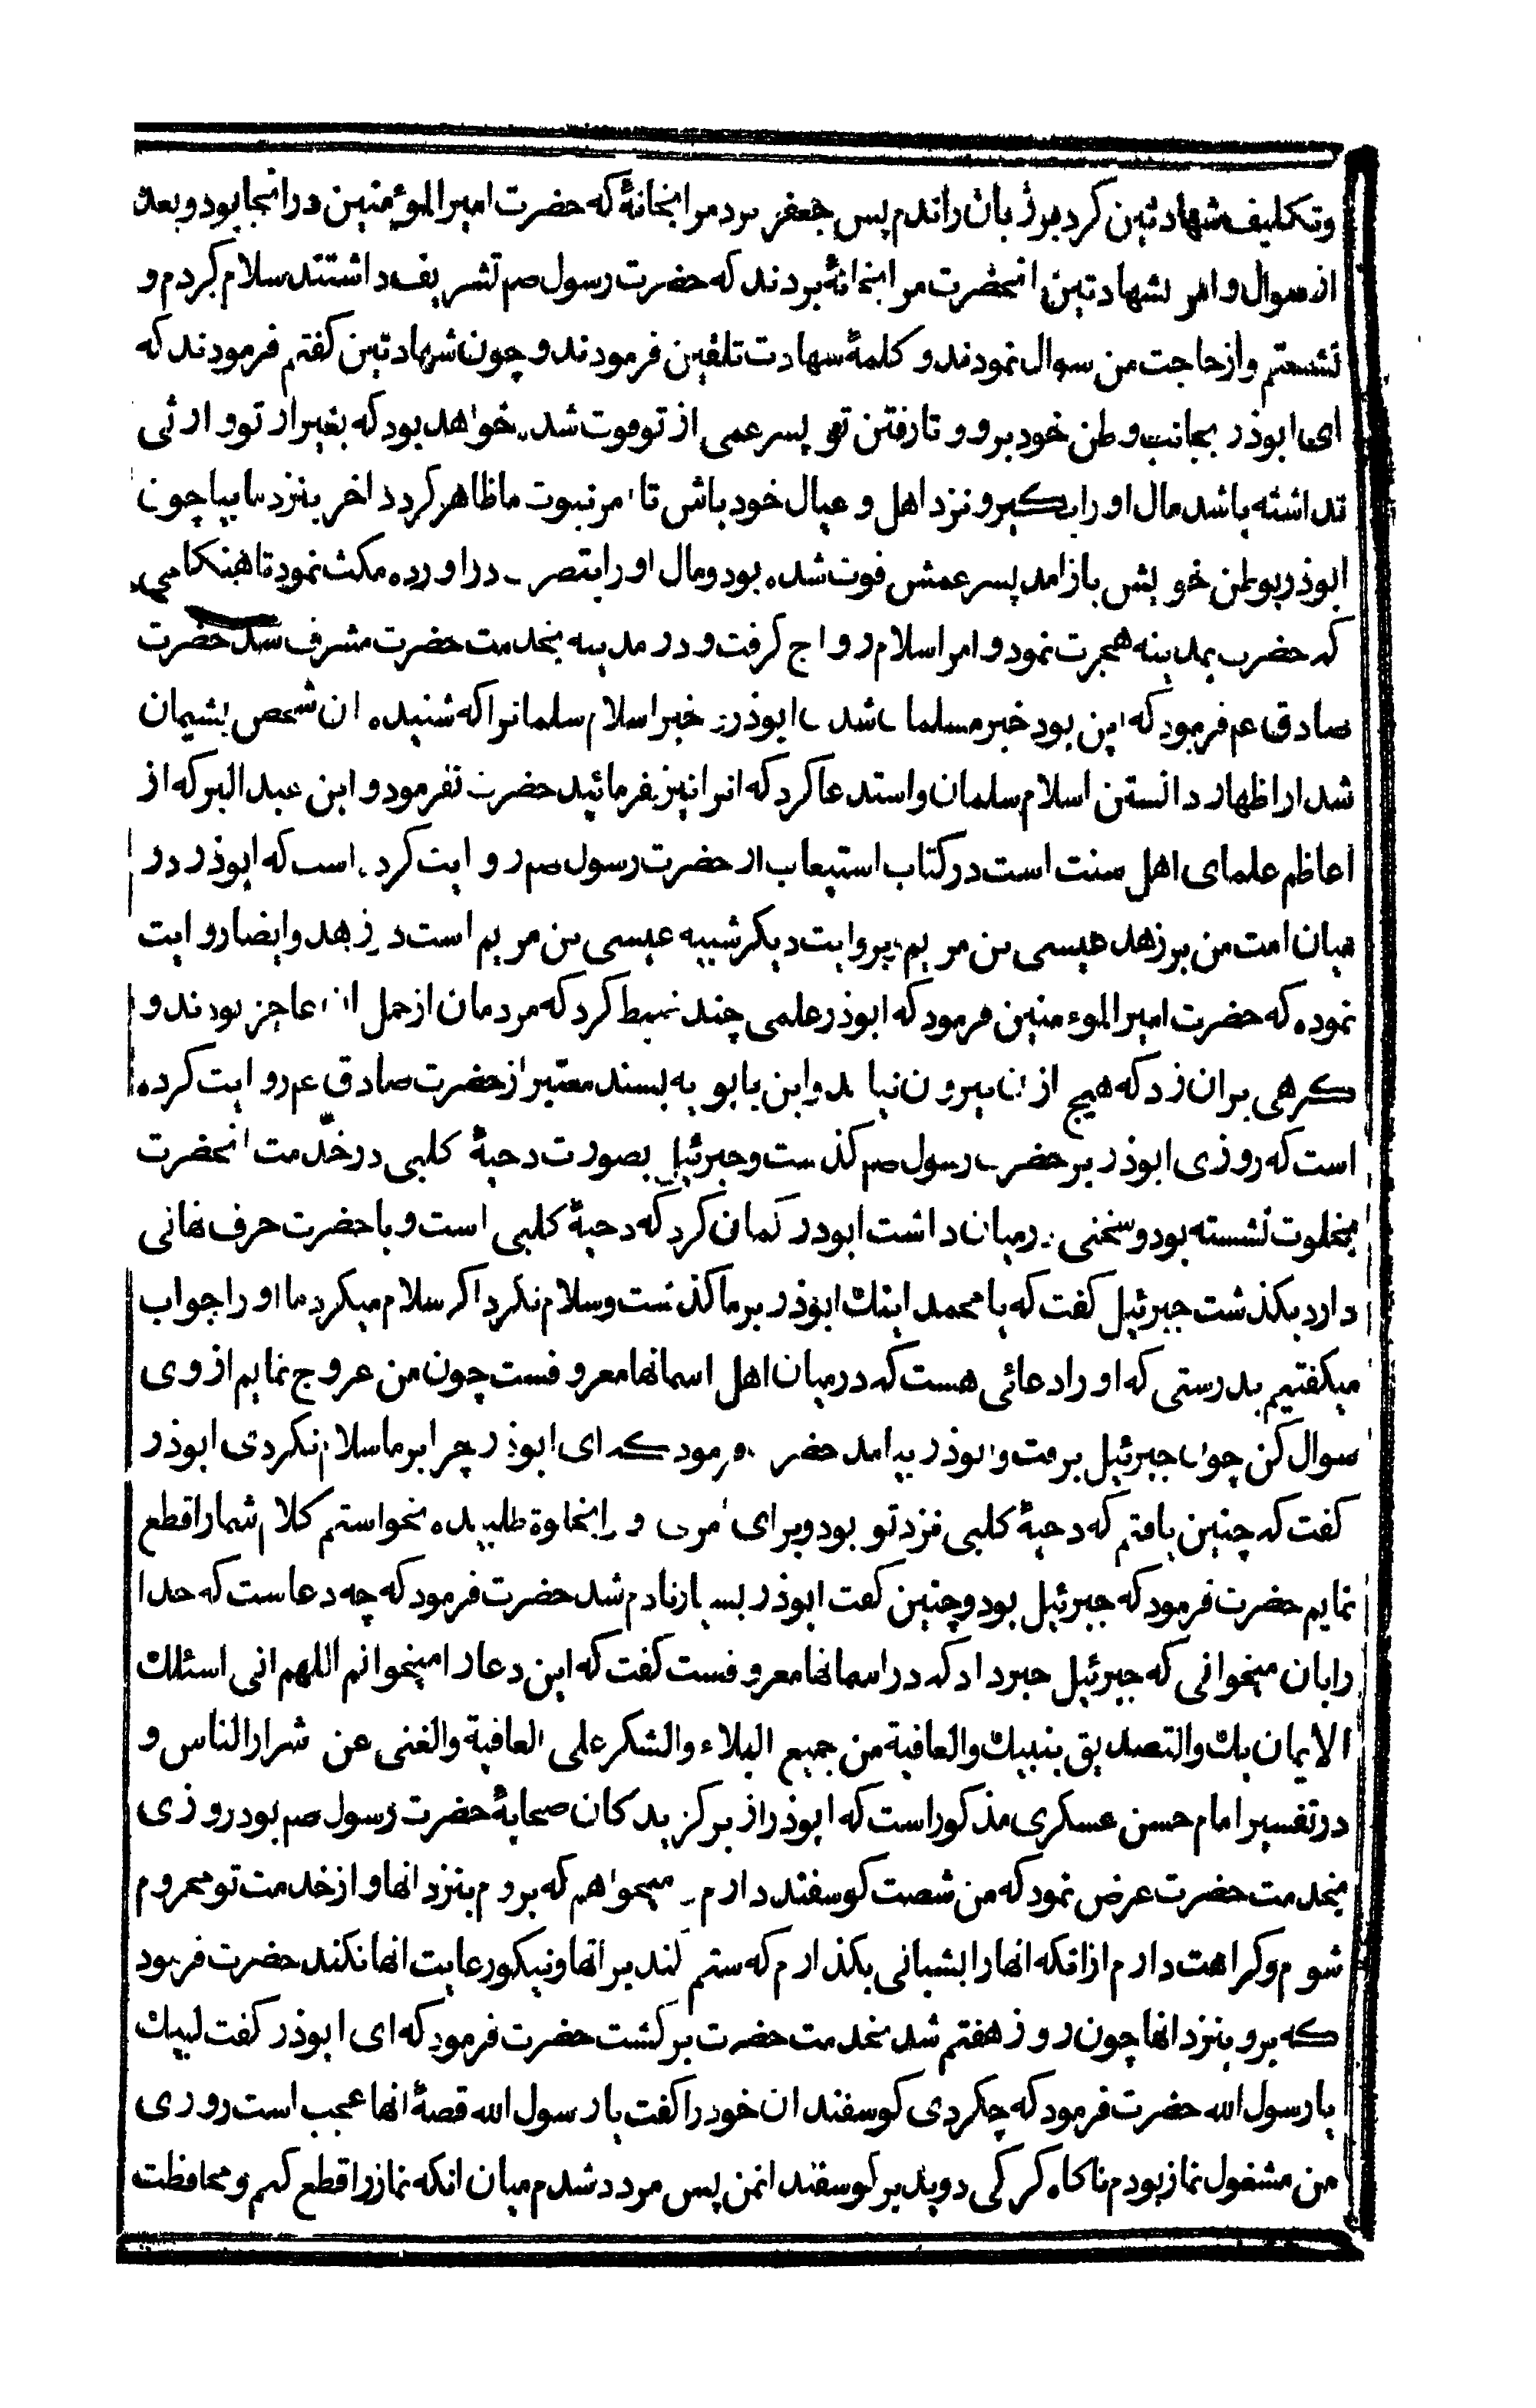 وتکلیف شهادتین کرد برزبان راندم پس جعفر برد مرا بخانهٔ که حضرت امیرالموٴمنین درانجا بود و بعد
از سوال و امر بشهادتین انحضرت مرا بخانهٔ بردند که حضرت رسول صم تشریف داشتند سلام کردم و
نشستم و از حاجت من سوال نمودند و کلمهٔ شهادت تلقین فرمودند و چون شهادتین کفتم فرمودند که
ای ابوذر بجانب وطن خود برو و تا رفتن تو پسر عمی از تو فوت شده خواهد بود که بغیر از تو وارثی
نداشته باشد مال او را بکیر و نزد اهل و عیال خود باش تا امر نبوت ما ظاهر کردد اخر بنزد ما بیا چون
ابوذر بوطن خویش باز امد پسر عمش فوت شده بود و مال او را بتصرف در اورده مکث نمود تا هنکامی
که حضرت بمدینه هجرت نمود و امر اسلام رواج کرفت و در مدینه بخدمت حضرت مشرف شد حضرت
صادق عم فرمود که این بود خبر مسلمان شدن ابوذر خبر اسلام سلمانرا که شنیده ان شخص پشیمان
شد از اظهار دانستن اسلام سلمان و استدعا کرد که انرا نیز بفرمائید حضرت نفرمود و ابن عبد البر که از
اعاظم علمای اهل سنت است در کتاب استیعاب از حضرت رسول صم روایت کرده است که ابوذر در
میان امت من بر زهد عیسی بن مریم بروایت دیکر شبیه عیسی بن مریم است در زهد وایضا روایت
نموده که حضرت امیرالموءمنین فرمود که ابوذر علمی چند ضبط کرد که مردمان از حمل ان عاجز بودند و
کرهی بران زد که هیچ از ان بیرون نیامد وابن بابویه بسند معتبر از حضرت صادق عم روایت کرده
است که روزی ابوذر بر حضرت رسول صم کذشت و جبرئیل بصورت دحیهٔ کلبی در خدمت انحضرت
بخلوت نشسته بود و سخنی در میان داشت ابوذر کمان کرد که دحیهٔ کلبی است و با حضرت حرف نهانی
دارد بکذشت جبرئیل کفت که یا محمد اینك ابوذر بر ما کذشت و سلام نکرد اکر سلام میکرد ما او را جواب
میکفتیم بدرستی که او را دعائی هست که در میان اهل اسمانها معروفست چون من عروج نمایم از وی
سوال کن چون جبرئیل برفت و ابوذر بیامد حضرت فرمود که ای ابوذر چرا بر ما سلام نکردی ابوذر
کفت که چنین یافتم که دحیهٔ کلبی نزد تو بود و برای امری او را بخلوة طلبیده نخواستم کلام شما را قطع
نمایم حضرت فرمود که جبرئیل بود و چنین کفت ابوذر بسیار نادم شد حضرت فرمود که چه دعاست که خدا
را بان میخوانی که جبرئیل خبر داد که در اسمانها معروفست کفت که این دعا را میخوانم اللهم انی اسئلك
الایمان بك والتصدیق بنبیك والعافیة من جمیع البلاء والشکر علی العافیة والغنی عن شرار الناس و
در تفسیر امام حسن عسکری مذکور است که ابوذر از برکزیدکان صحابهٔ حضرت رسول صم بود روزی
بخدمت حضرت عرض نمود که من شصت کوسفند دارم نمیخواهم که بروم بنزد انها و از خدمت تو محروم
شوم و کراهت دارم از انکه انها را بشبانی بکذارم که ستم کند بر انها و نیکو رعایت انها نکند حضرت فرمود
که برو بنزد انها چون روز هفتم شد بخدمت حضرت برکشت حضرت فرمود که ای ابوذر کفت لبیك
یا رسول الله حضرت فرمود که چکردی کوسفندان خود را کفت یا رسول الله قصهٔ انها عجب است روزی
من مشغول نماز بودم ناکاه کرکی دوید بر کوسفند انمن پس مردد شدم میان انکه نماز را قطع کنم و محافظت